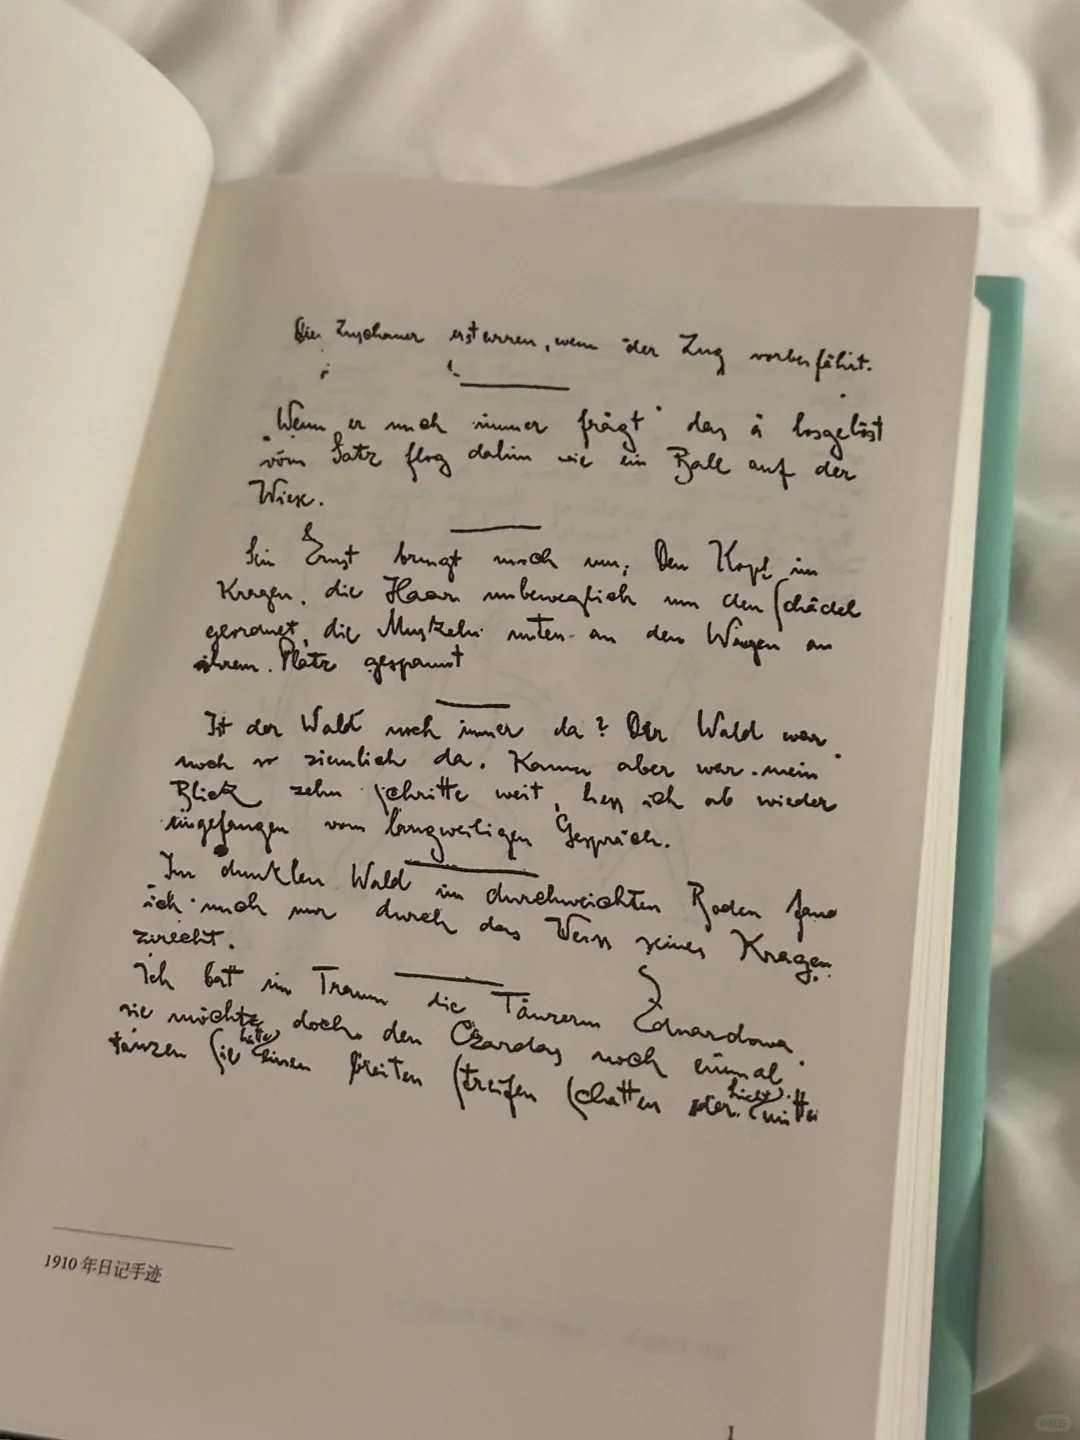 Die Zuschauer erstarren, wenn der Zug vorbeifährt.
"Wenn er mich immer frägt" das ä losgelöst
vom Satz flog dahin wie ein Ball auf der
Wiese.
Sein Ernst bringt mich um. Den Kopf im
Kragen, die Haare unbeweglich um den Schädel
geordnet, die Muskeln unten an den Wangen an
ihrem Platz gespannt
Ist der Wald noch immer da? Der Wald war
noch so ziemlich da. Kaum aber war mein
Blick zehn Schritte weit, liess ich ab wieder
eingefangen vom langweiligen Gespräch.
Im dunklen Wald im durchweichten Boden fand
ich mich nur durch das Weiss seines Kragens
zurecht.
Ich bat im Traum die Tänzerin Eduardowa
sie möchte doch den Czardas noch einmal
tanzen Sie hatte einen breiten Streifen Schatten oder Licht mitten
1910 年日记手迹
1